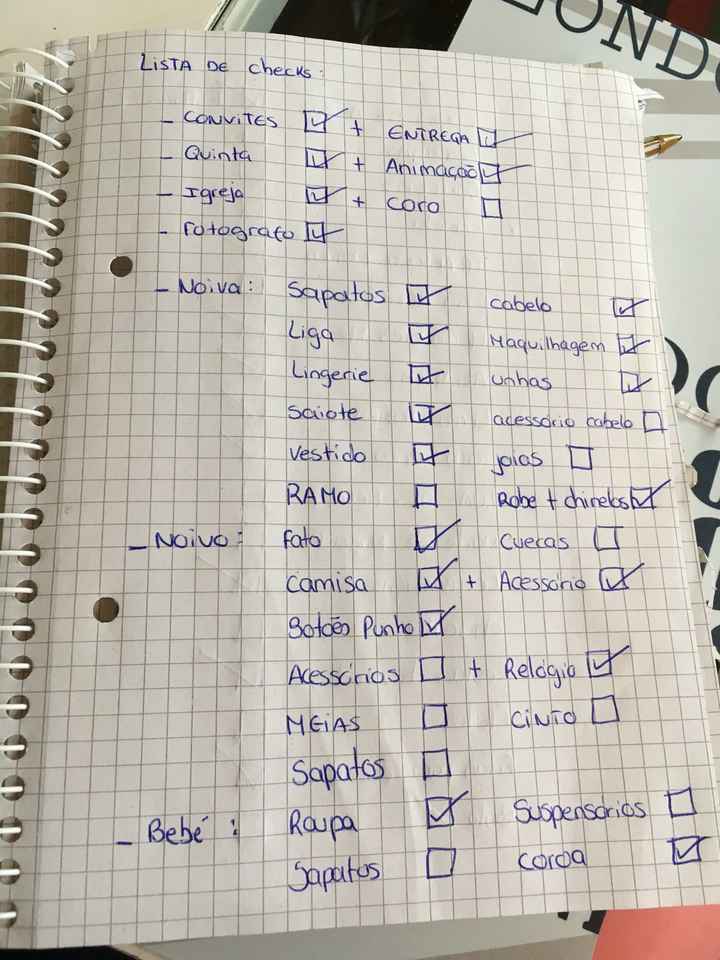 LISTA DE checks:
- CONVITES ☑ + ENTREGA ☑
- Quinta ☑ + Animação ☑
- Igreja ☑ + coro ☐
- Fotografo ☑
- Noiva: Sapatos ☑ cabelo ☑
Liga ☑ Maquilhagem ☑
Lingerie ☑ unhas ☑
Saiote ☑ acessório cabelo ☐
Vestido ☑ joias ☐
RAMO ☐ Robe + chinelos ☑
- Noivo: Fato ☑ Cuecas ☐
Camisa ☑ + Acessório ☑
Botões Punho ☑
Acessórios ☐ + Relógio ☑
MEIAS ☐ CINTO ☐
Sapatos ☐
- Bebé: Roupa ☑ Suspensórios ☐
Sapatos ☐ coroa ☑
OND